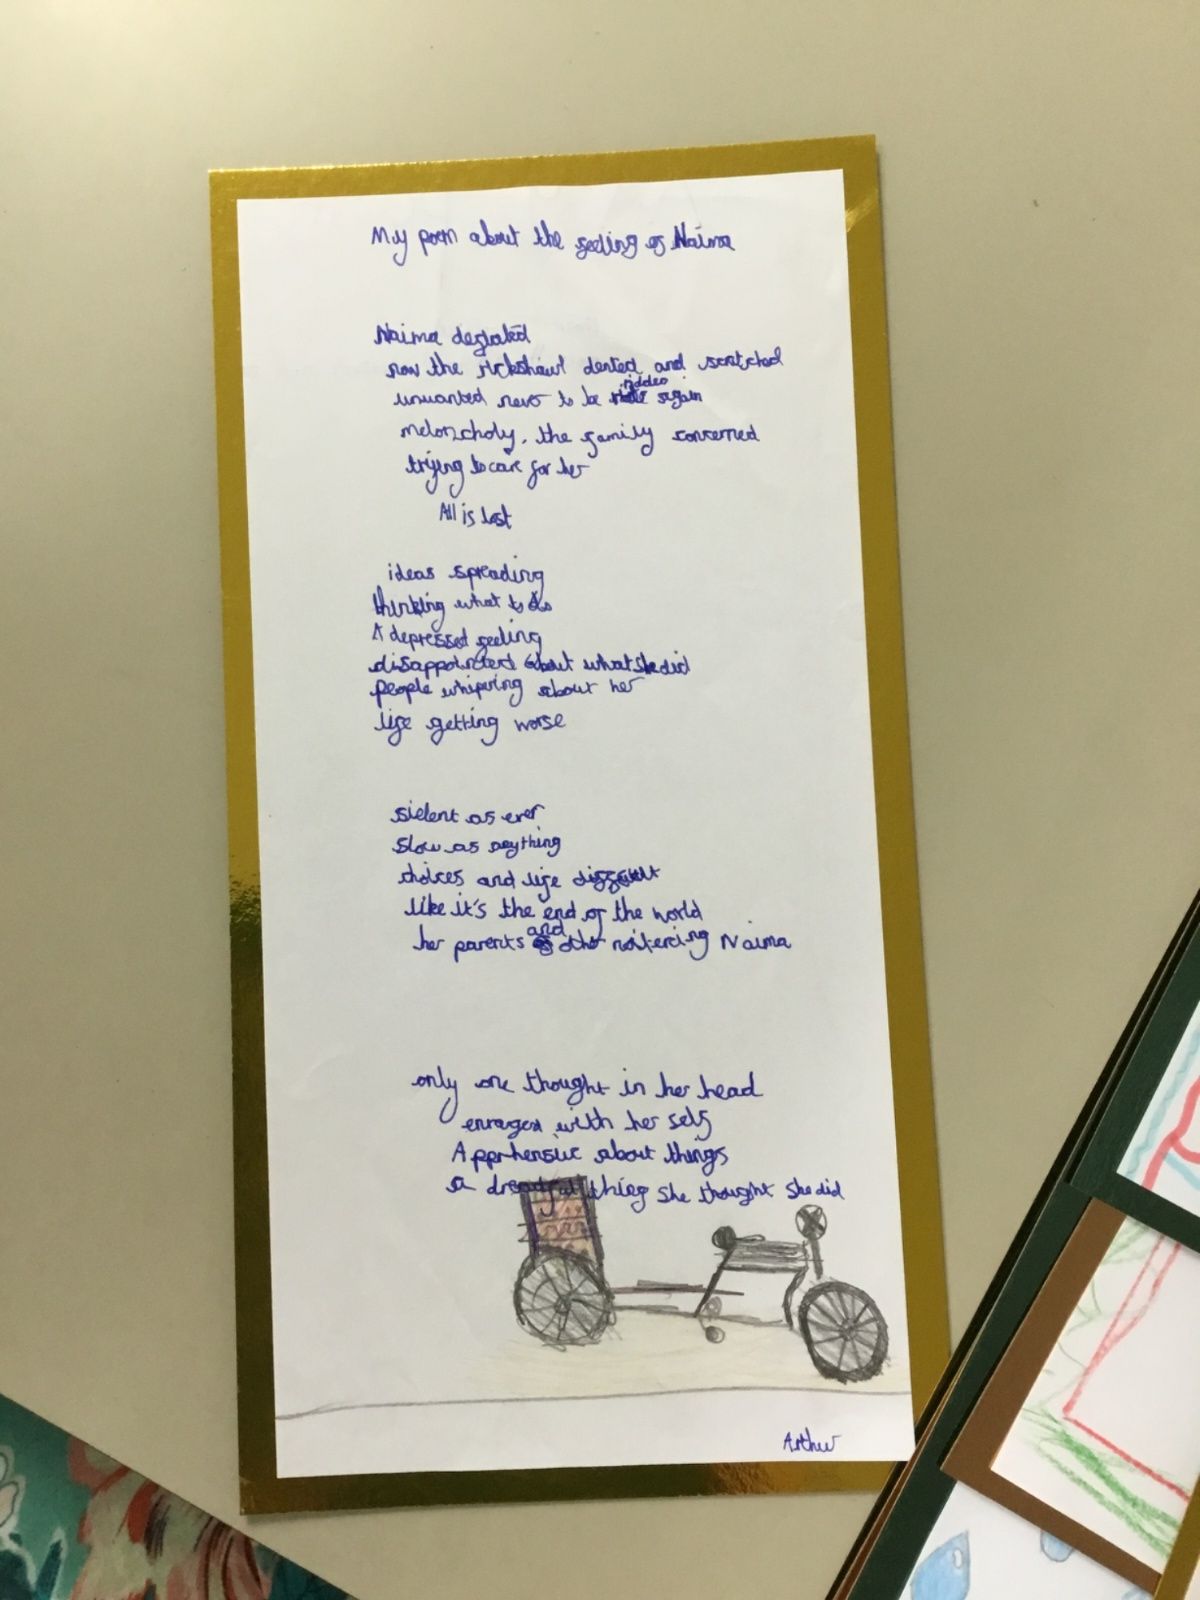 My poem about the feeling of Naima
Naima deflated
now the rickshawl dented and scratched
unwanted never to be ridden again
melonzcholy, the family concerned
trying to care for her
All is lost
ideas spreading
thinking what to do
A depressed feeling
disappointed about what she did
people whipering about her
life getting worse
sielent as ever
slow as anything
choices and life difficult
like it's the end of the world
her parents and other noitercing Naima
only one thought in her head
enraged with her self
Apprhensive about things
a dreadful thing she thought she did
Arthur